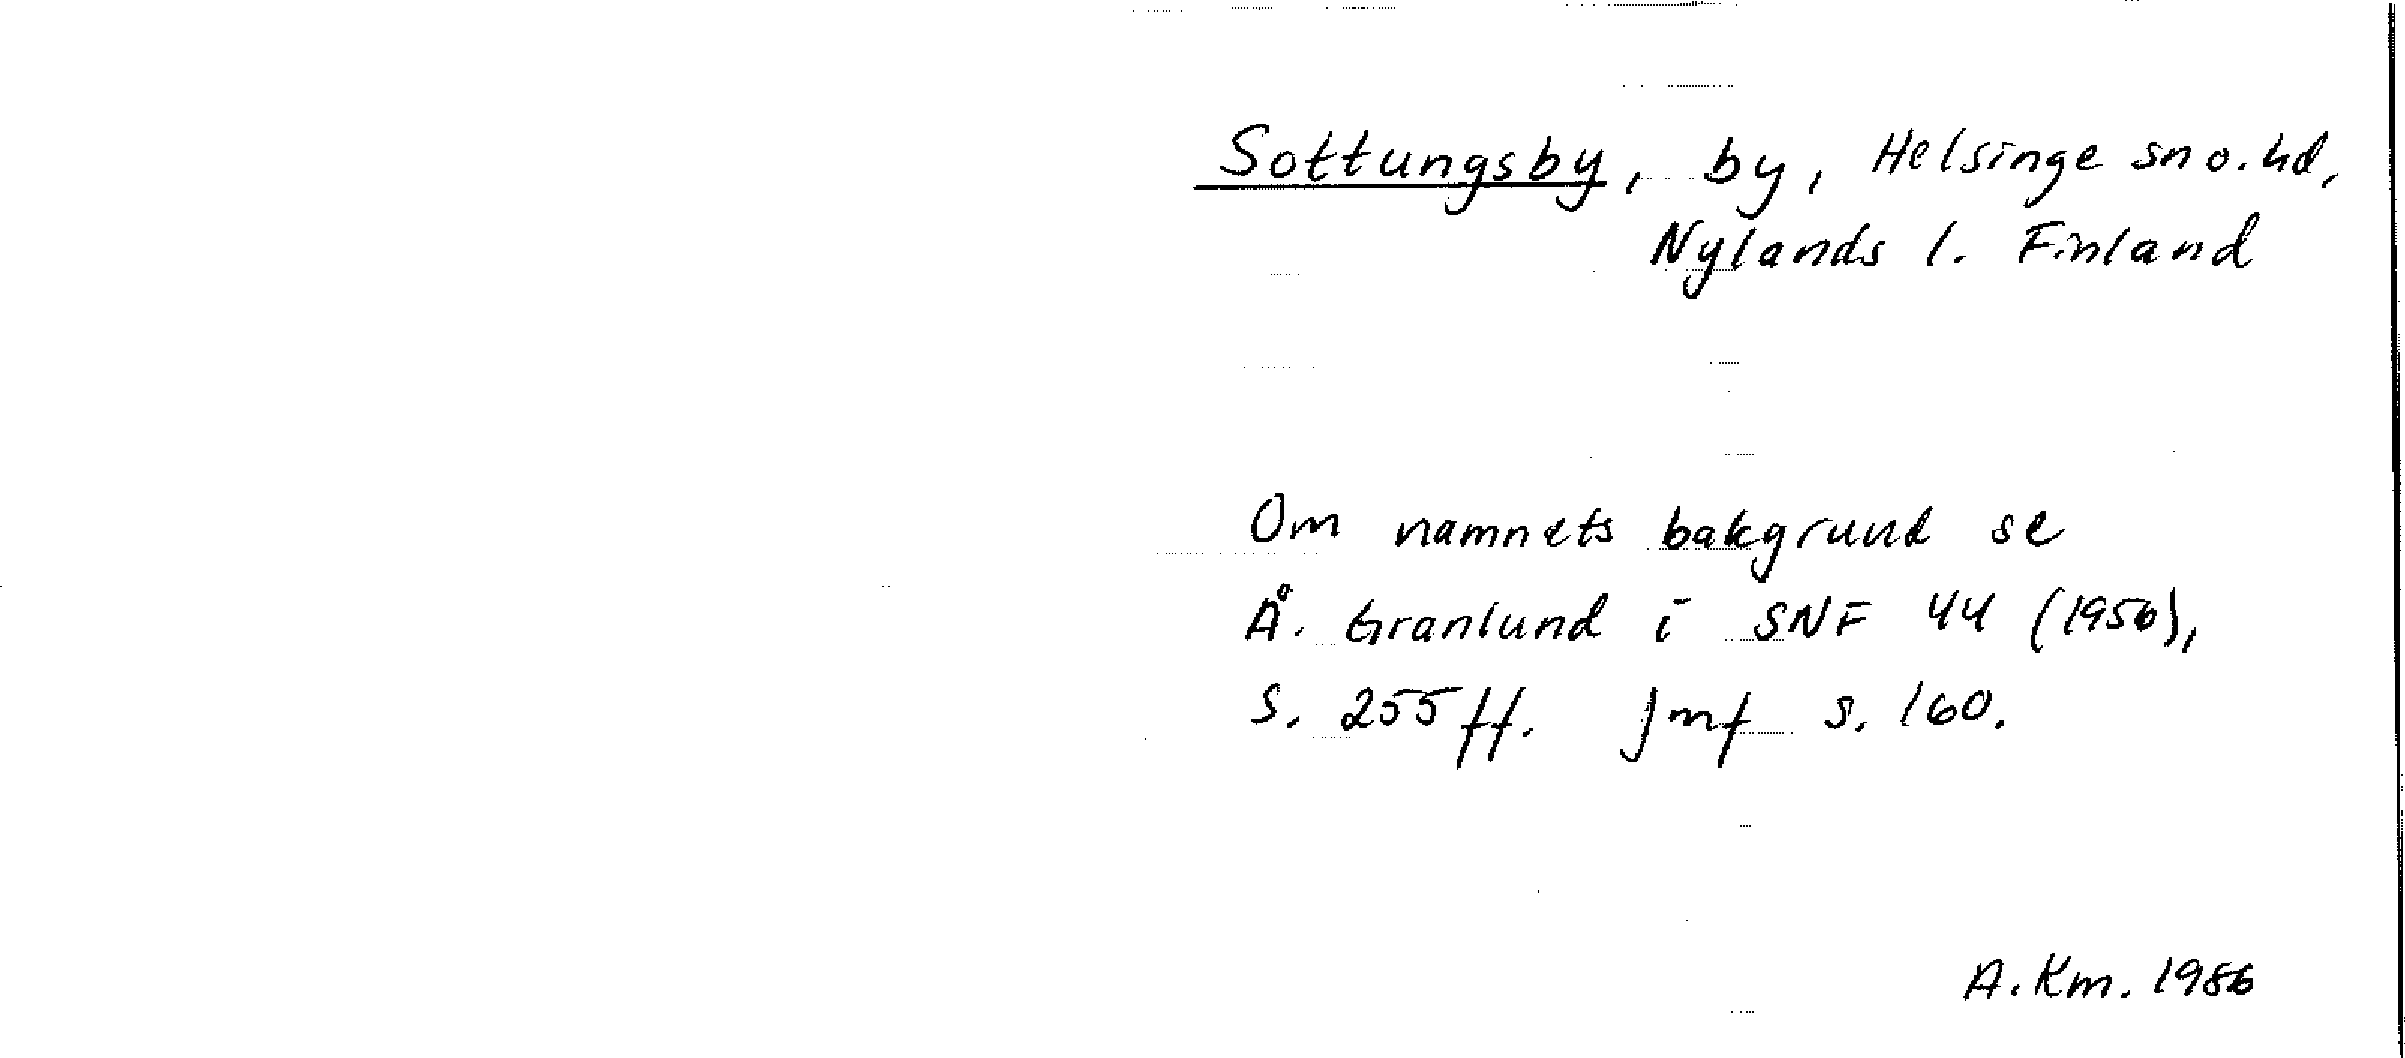 Sottungsby, by, Helsinge sn o. hd,
Nylands l. Finland
Om namnets bakgrund se
Å. Granlund i SNF 44 (1956),
S. 255 ff. Jmf s. 160.
A. Km. 1986